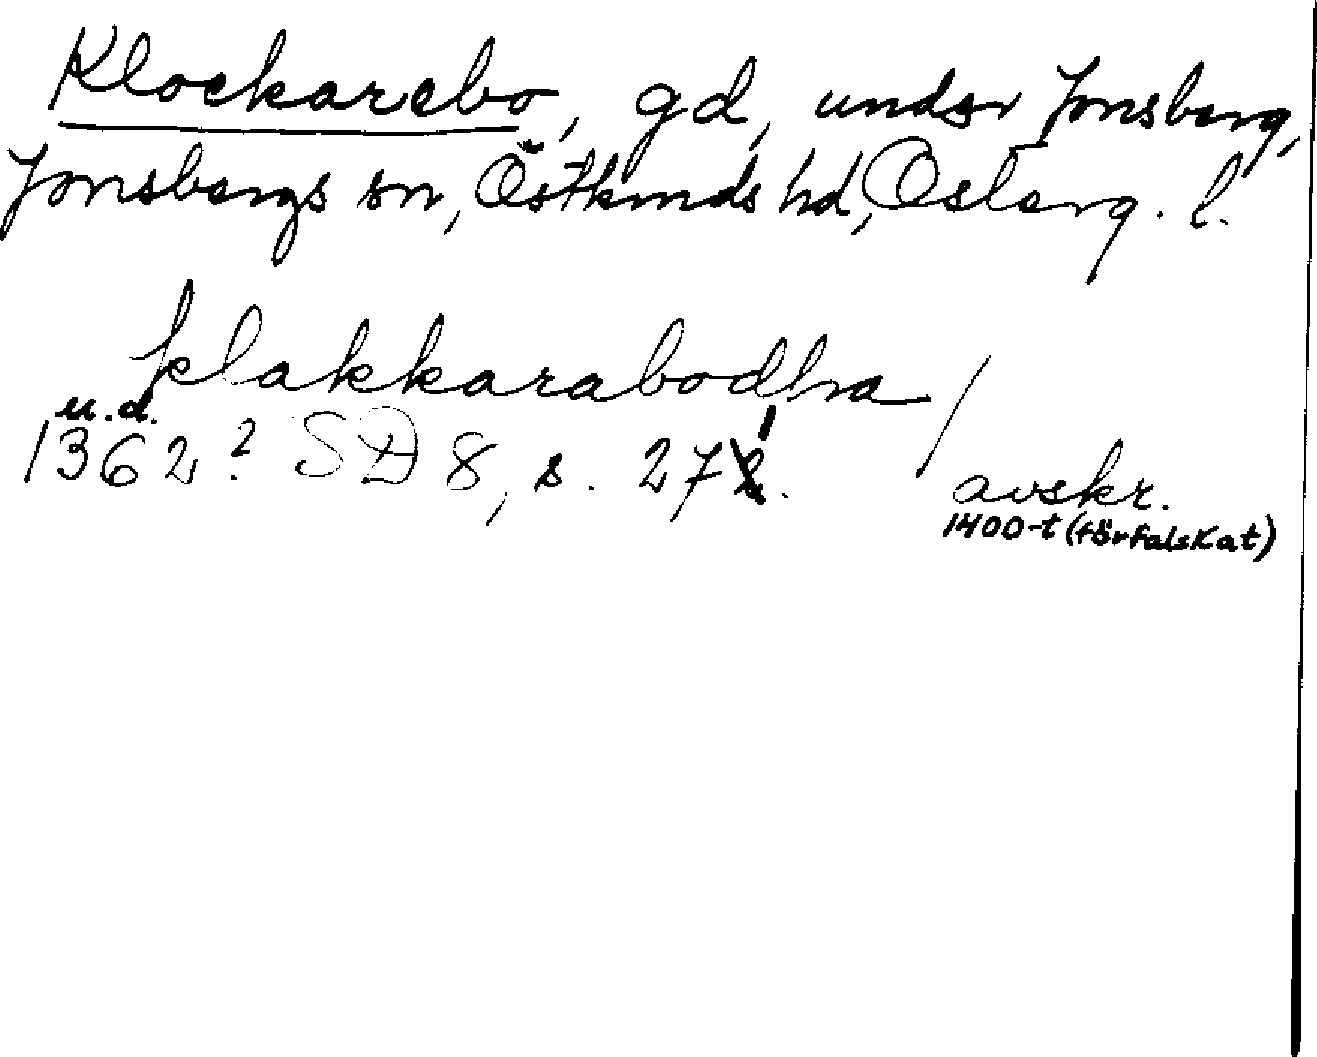 Klockarebo, gd, under Jonsberg,
Jonsbergs sn, Östkinds hd, Österg. l.
klakkarabodha
u.d.
1362? SD 8, s. 271.
avskr.
1400-t (förfalskat)